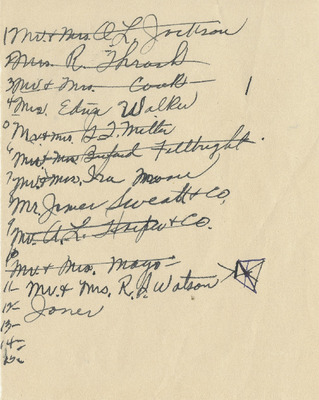 1 Mr. & Mrs. O. L. Jackson
2 Mrs. R. Thrash
3 Mr & Mrs. Cook
4 Mrs. Edna Walker
5 Mr. & Mrs. Miller
6 Mr & Mrs Buford Fullbright.
7 Mr & Mrs. Ira Moore
8 Mr. James Sweatt & Co.
9 Mr. A. L. & Co.
10 Mr & Mrs. Mayo
11- Mr. & Mrs. R. S. Watson
12- Jones
13-
14-
15-